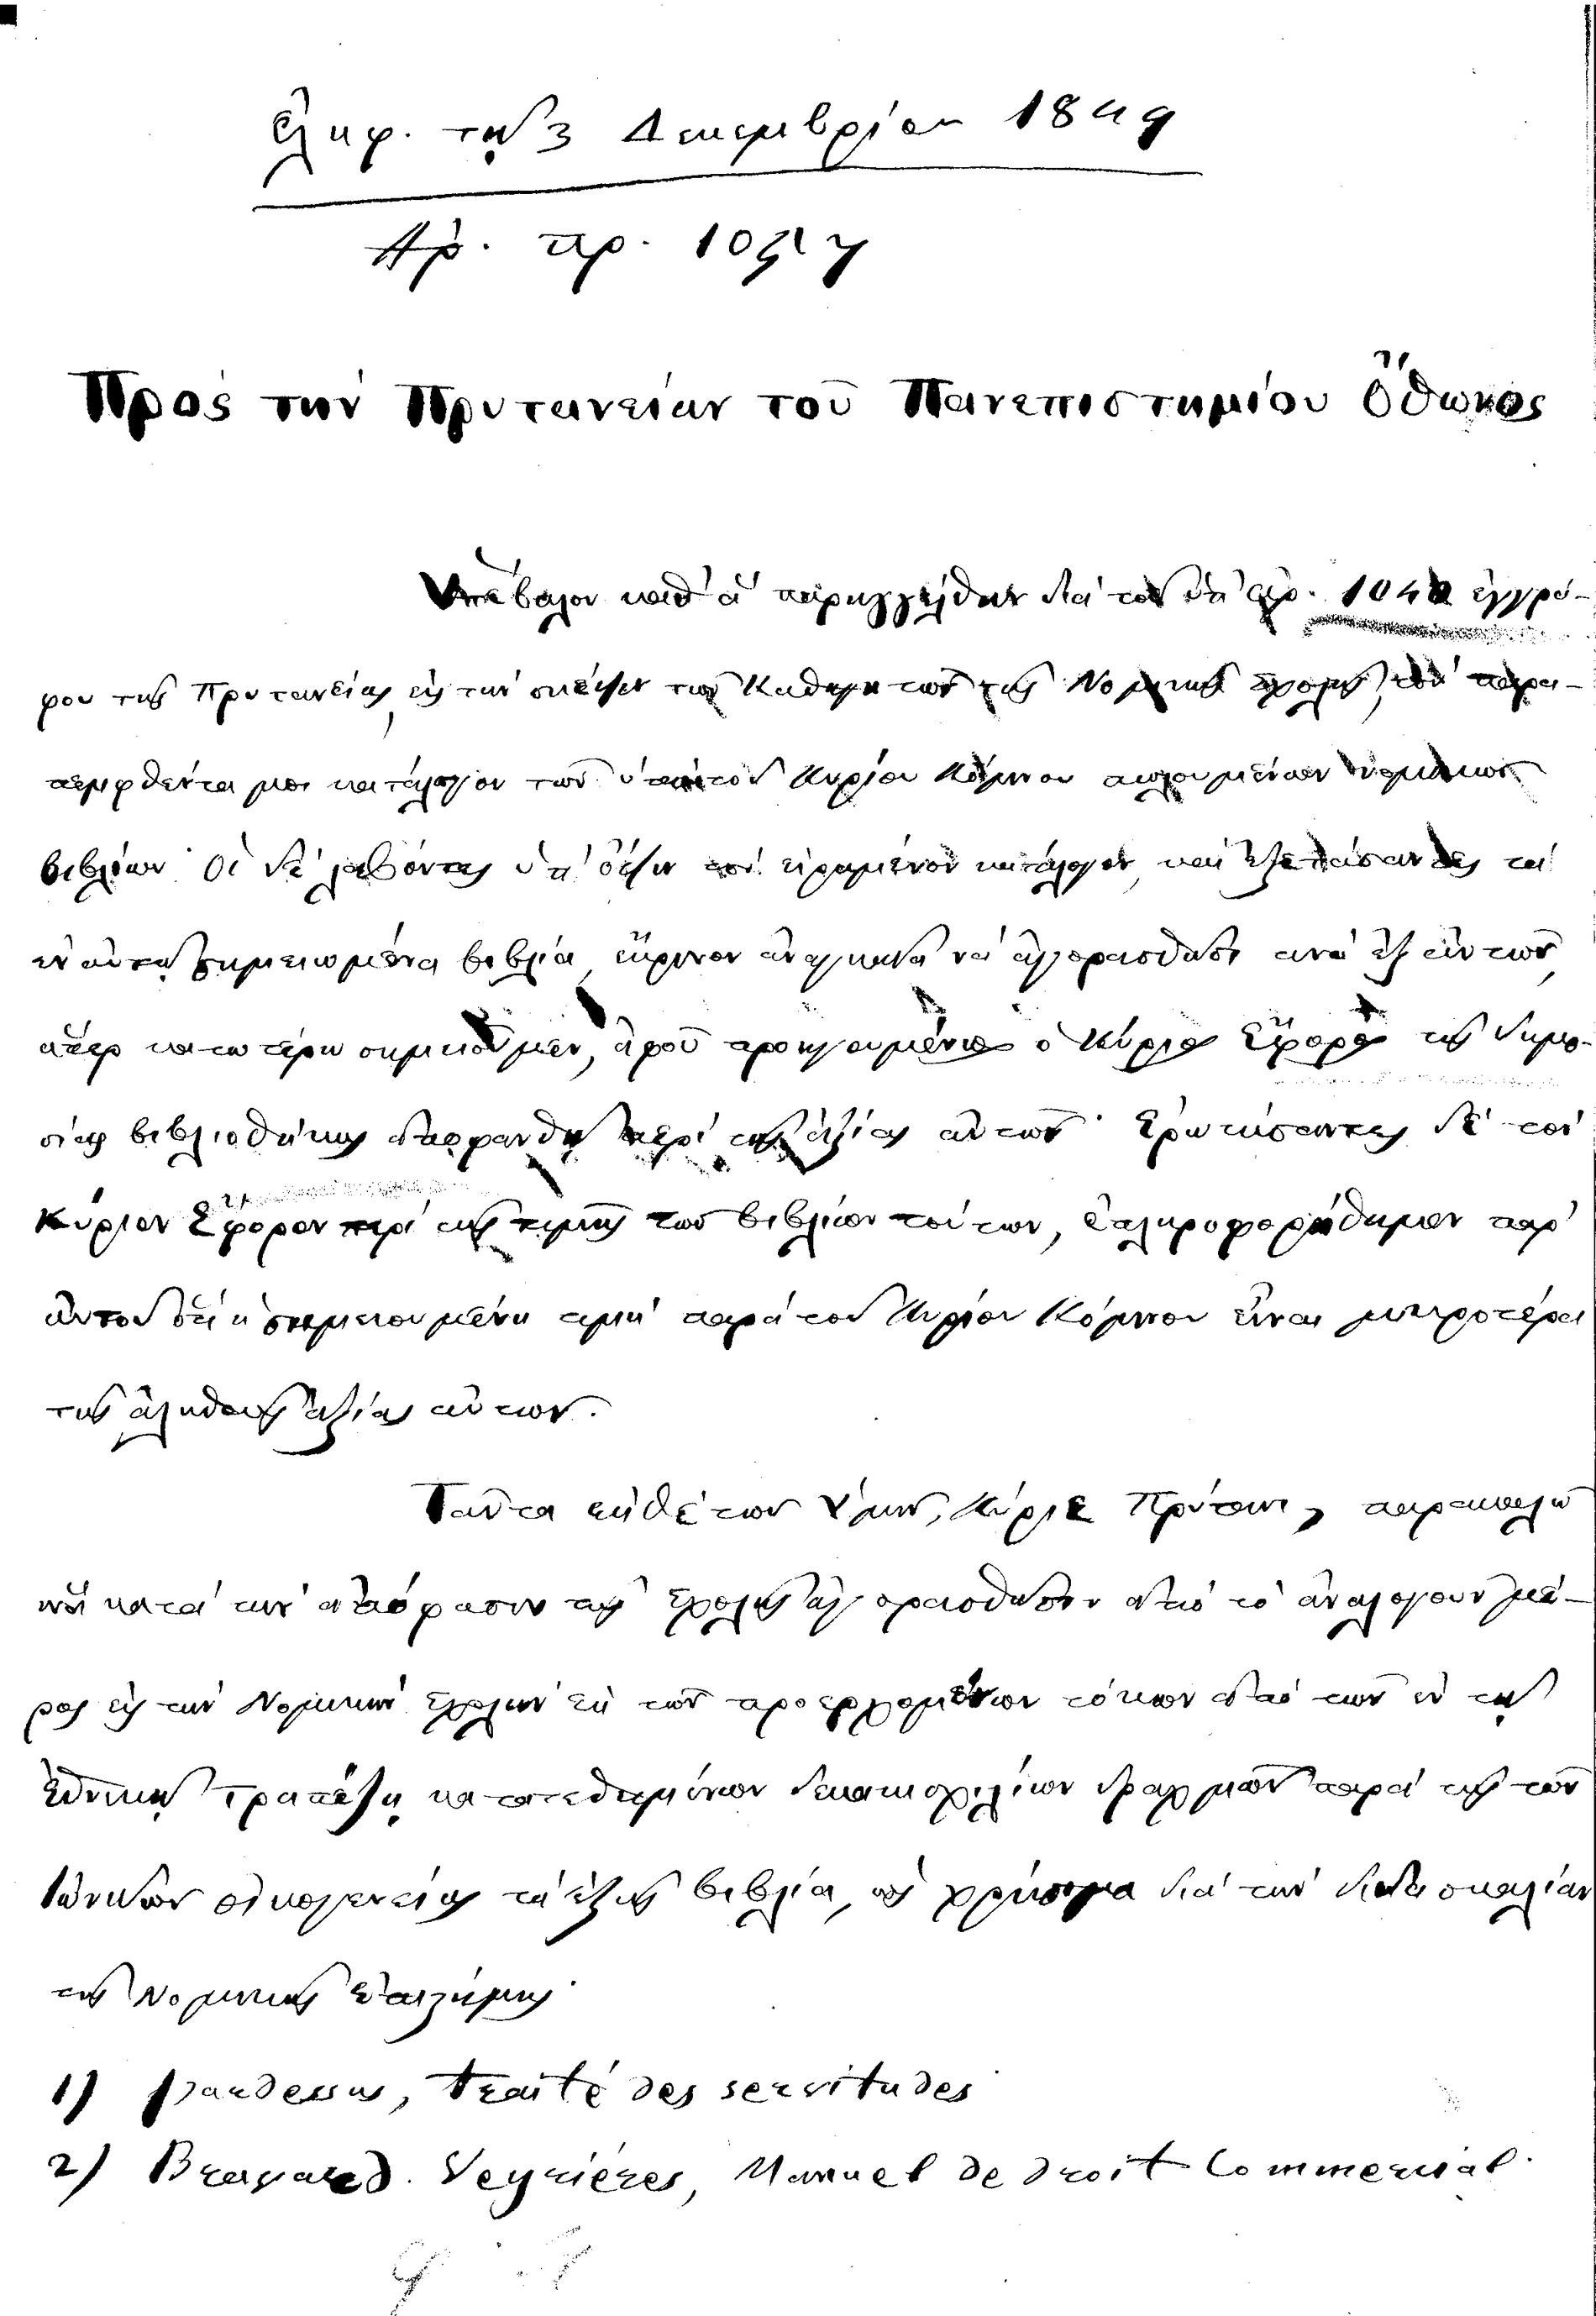 ἐλήφ. τῇ 3 Δεκεμβρίου 1849
Ἀρ. πρ. 1057
Πρὸς τὴν Πρυτανείαν τοῦ Πανεπιστημίου Ὄθωνος
Ὑπέβαλον καθ' ἃ παρηγγέλθην διὰ τοῦ ὑπ' ἀρ. ἐγγρά-
φου τῆς Πρυτανείας, εἰς τὴν σκέψιν τῶν Καθηγητῶν τῆς Νομικῆς Σχολῆς, τὸν παρα-
πεμφθέντα μοι κατάλογον τῶν ὑπὸ τοῦ Κυρίου Κόμνου πωλουμένων νομικῶν
βιβλίων· Οἱ δὲ λαβόντες ὑπ' ὄψιν τὸν εἰρημένον κατάλογον, καὶ ἐξετάσαντες τὰ
ἐν αὐτῷ σημειωμένα βιβλία, ἔκρινον ἀναγκαῖα νὰ ἀγορασθῶσι τινὰ ἐξ αὐτῶν,
ἅπερ κατωτέρω σημειοῦμεν, ἀφοῦ προηγουμένως ὁ Κύριος Ἔφορος τῆς δημο-
σίας βιβλιοθήκης ἀποφανθῇ περὶ τῆς ἀξίας αὐτῶν· Ἐρωτήσαντες δὲ τὸν
Κύριον Ἔφορον περὶ τῆς τιμῆς τῶν βιβλίων τούτων, ἐπληροφορήθημεν παρ'
αὐτοῦ ὅτι ἡ σημειουμένη τιμὴ παρὰ τοῦ Κυρίου Κόμνου εἶναι μικροτέρα
τῆς ἀληθοῦς ἀξίας αὐτῶν.
Ταῦτα ἐκθέτων Ὑμῖν, Κύριε Πρύτανι, παρακαλῶ
ἵνα κατὰ τὴν ἀπόφασιν τῆς Σχολῆς ἀγορασθῶσιν ἀπὸ τὸ ἀναλογοῦν μέ-
ρος εἰς τὴν Νομικὴν Σχολὴν ἐκ τῶν προερχομένων τόκων ἀπὸ τῶν ἐν τῇ
Ἐθνικῇ Τραπέζῃ κατατεθειμένων δεκακισχιλίων δραχμῶν παρὰ τῆς τῶν
Ἰωνιδῶν οἰκογενείας τὰ ἑξῆς βιβλία, ὡς χρήσιμα διὰ τὴν διδασκαλίαν
τῆς Νομικῆς ἐπιστήμης·
1) Pardessus, traité des servitudes
2) Bravard. Veyrières, Manuel de droit Commercial.